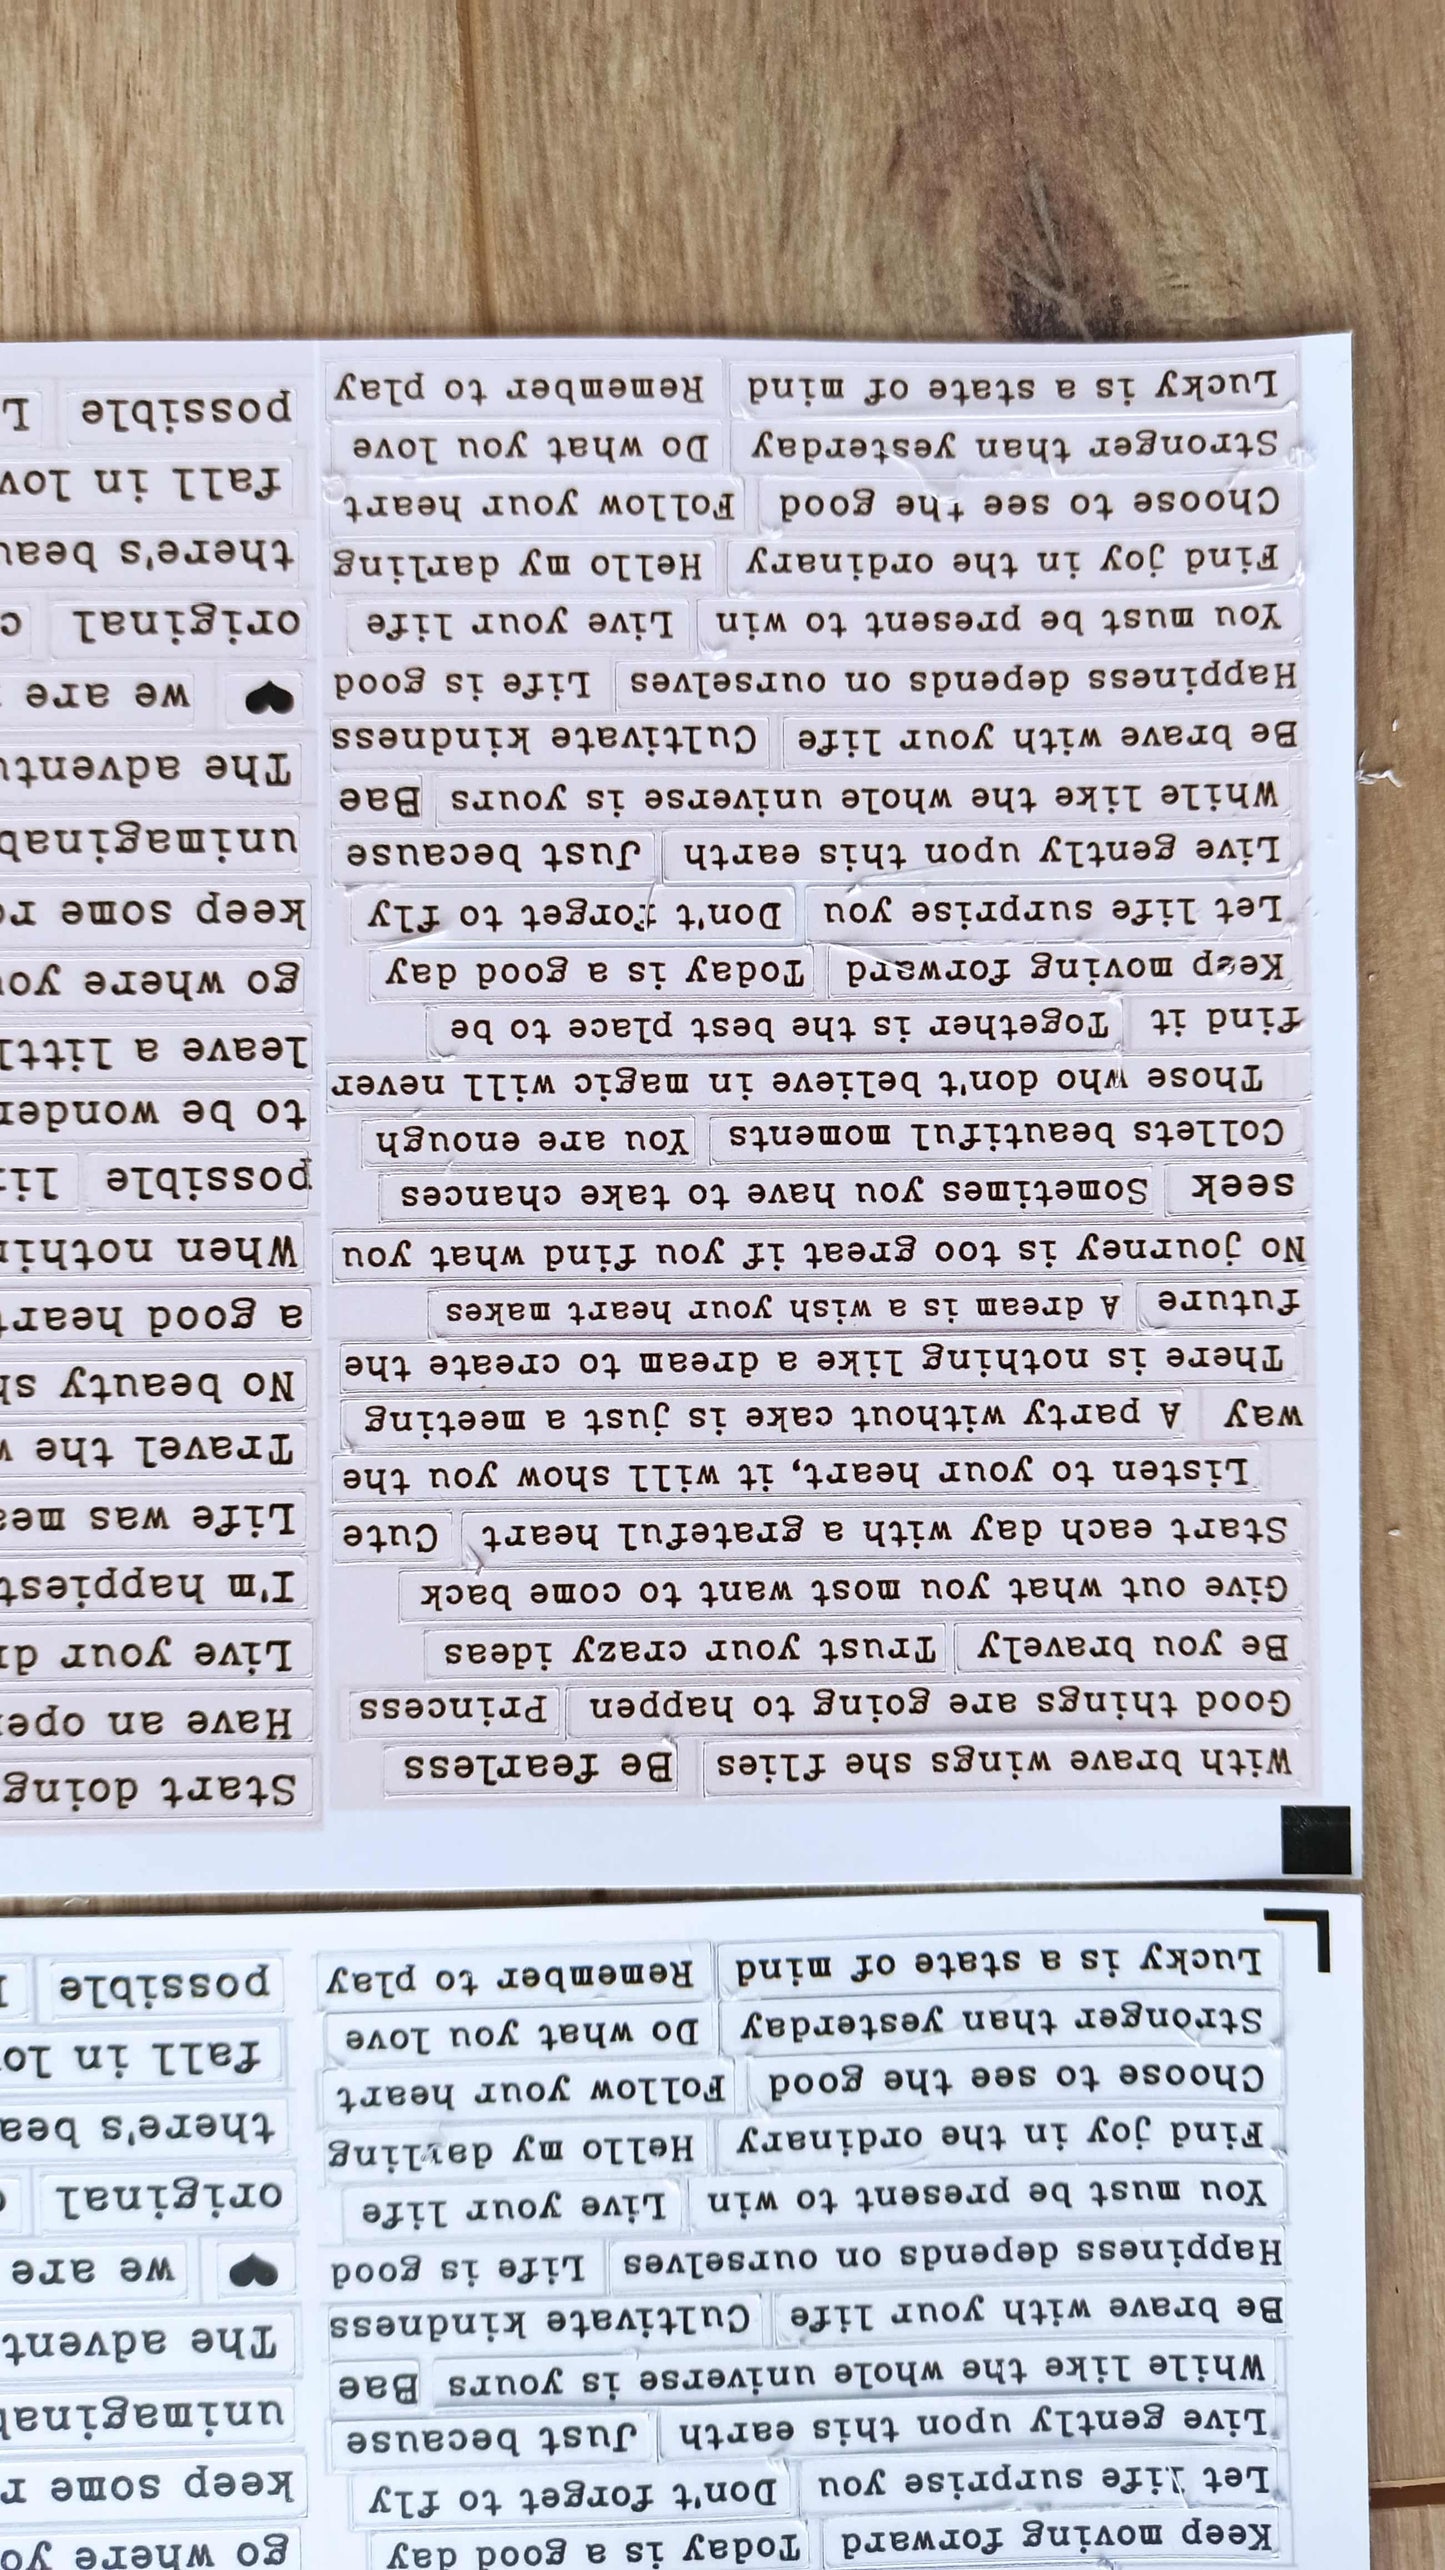 Keep moving forward Today is a good day
Let life surprise you Don't forget to fly
Live gently upon this earth Just because
While like the whole universe is yours Bae
Be brave with your life Cultivate kindness
Happiness depends on ourselves Life is good
You must be present to win Live your life
Find joy in the ordinary Hello my darling
Choose to see the good Follow your heart
Stronger than yesterday Do what you love
Lucky is a state of mind Remember to play
go where
keep some
The
we are
original
there's
fall in
possible
With brave wings she flies Be fearless
Good things are going to happen Princess
Be you bravely Trust your crazy ideas
Give out what you most want to come back
Start each day with a grateful heart Cute
Listen to your heart, it will show you the
way A party without cake is just a meeting
There is nothing like a dream to create the
future A dream is a wish your heart makes
No journey is too great if you find what you
seek Sometimes you have to take chances
Collets beautiful moments You are enough
Those who don't believe in magic will never
find it Together is the best place to be
Keep moving forward Today is a good day
Let life surprise you Don't forget to fly
Live gently upon this earth Just because
While like the whole universe is yours Bae
Be brave with your life Cultivate kindness
Happiness depends on ourselves Life is good
You must be present to win Live your life
Find joy in the ordinary Hello my darling
Choose to see the good Follow your heart
Stronger than yesterday Do what you love
Lucky is a state of mind Remember to play
Start doing
Have an
Live your
I'm happiest
Life was
Travel the
No beauty
a good heart
When
possible
to be
leave a
go where
keep some
The
we are
original
there's
fall in
possible